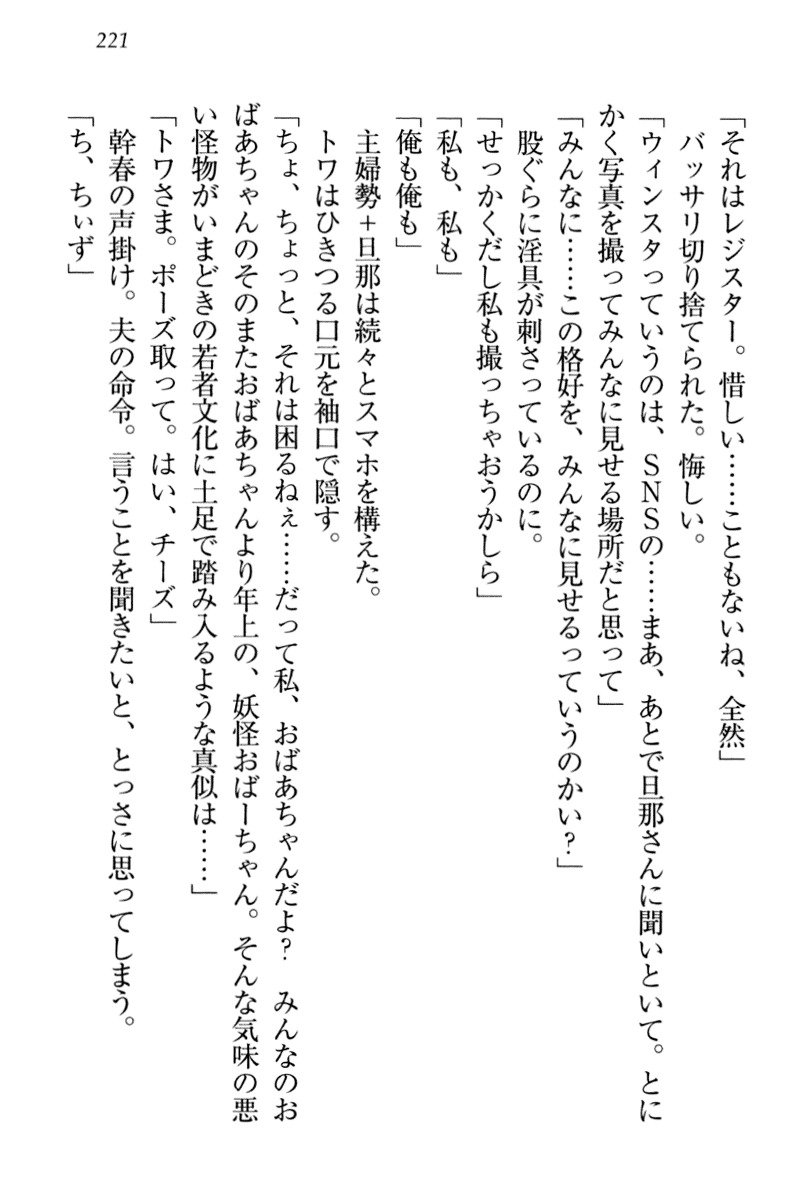 221
「それはレジスター。惜しい……こともないね、全然」
バッサリ切り捨てられた。悔しい。
「ウィンスタっていうのは、ＳＮＳの……まあ、あとで旦那さんに聞いといて。とに
かく写真を撮ってみんなに見せる場所だと思って」
「みんなに……この格好を、みんなに見せるっていうのかい？」
股ぐらに淫具が刺さっているのに。
「せっかくだし私も撮っちゃおうかしら」
「私も、私も」
「俺も俺も」
主婦勢＋旦那は続々とスマホを構えた。
トワはひきつる口元を袖口で隠す。
「ちょ、ちょっと、それは困るねぇ……だって私、おばあちゃんだよ？　みんなのお
ばあちゃんのそのまたおばあちゃんより年上の、妖怪おばーちゃん。そんな気味の悪
い怪物がいまどきの若者文化に土足で踏み入るような真似は……」
「トワさま。ポーズ取って。はい、チーズ」
幹春の声掛け。夫の命令。言うことを聞きたいと、とっさに思ってしまう。
「ち、ちぃず」